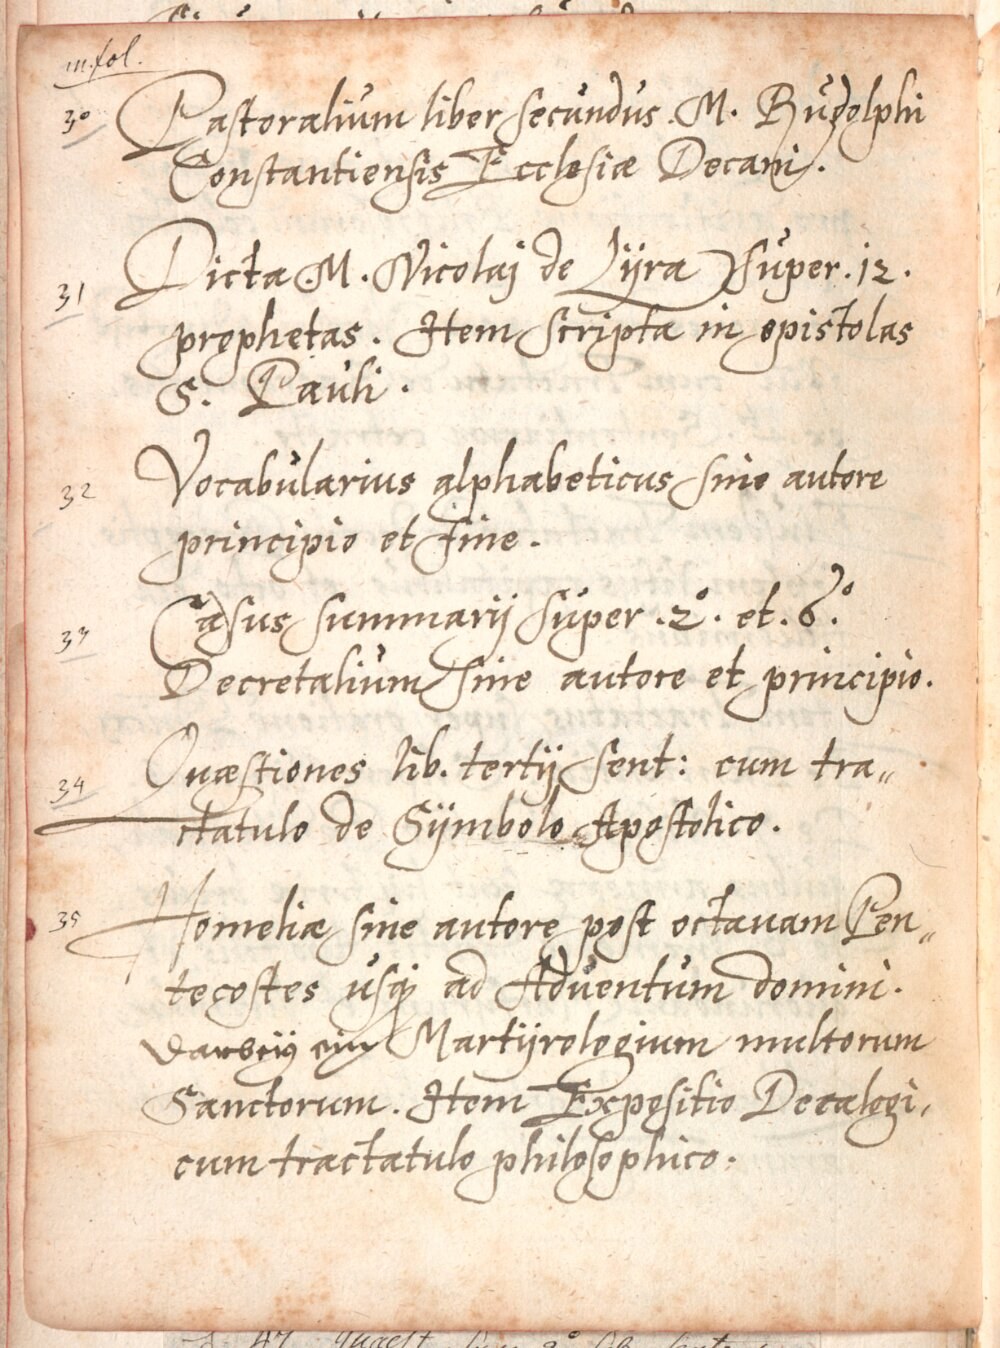 in fol.
30 Pastoralium liber secundus. M. Rudolphi
Constantiensis Ecclesiæ Decani.
31 Dicta M. Nicolaj de Lÿra super .12.
prophetas. Item scripta in epistolas
S. Pauli.
32 Vocabularius alphabeticus sine autore
principio et fine.
33 Casus summarij super .2º. et .6º.
Decretalium sine autore et principio.
34 Quæstiones lib. tertij sent: cum tra„
ctatulo de Sÿmbolo Apostolico.
35 Homeliæ sine autore post octauam Pen„
tecostes usq; ad Aduentum domini.
Martÿrologium multorum
Sanctorum. Item Expositio Decalogi,
cum tractatulo philosophico.